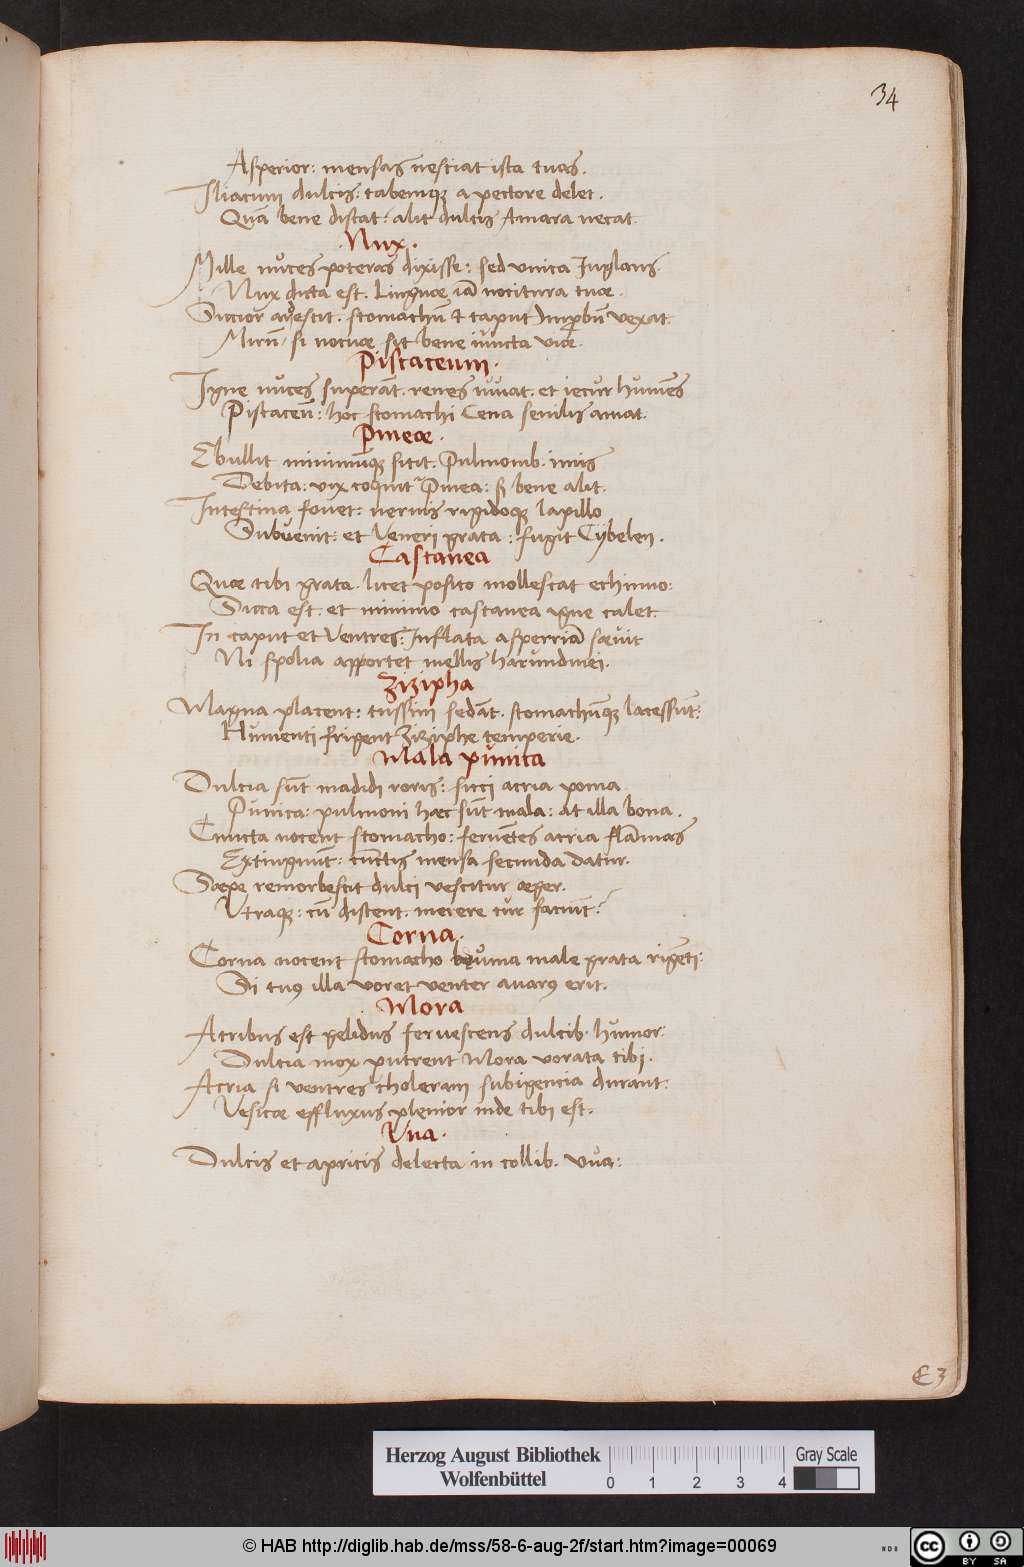 34
Asperior: mensas nesciat ista tuas.
Iliacum dulcis: tabemq; a pectore delet.
Quā bene distat: alit dulcis Amara necat.
Nux.
Mille nuces poteras dixisse: sed vnica Iuglans
Nux dicta est. Linguae iā nocitura tuae.
Siccior acrescit. stomachū & caput Imp̄bū vexat.
Mirū / si nocuae sit bene iuncta viae.
Pistaceum.
Igne nuces superāt. renes iuuat. et iecur humēs
Pistaceū: hoc stomachi Cena senilis amat.
Pineae.
Ebullit minimūq; sitit. Pulmonib. imis
Debita: vix coquit Pinea: s; bene alit.
Intestina fouet: neruis rigidoq; lapillo
Subuenit: et Veneri grata: fugit Cybelen.
Castanea
Quae tibi grata. licet posito mollescat echinno:
Sicca est. et minimo castanea igne calet.
In caput et Ventres: Inflata asperriā saeuit
Ni spolia apportet mellis harundinei.
Zizipha
Magna placent: tussim sedāt. stomachūq; lacessūt:
Humenti frigent Ziziphe temperie.
Mala punica
Dulcia sūt madidi roris: sicci acria poma
Punica: pulmoni haec sūt mala: at illa bona.
Cuncta nocent stomacho: feruētes acria flāmas
Extingunt: cūctis mensa secunda datur.
Saepe remorbescit dulci vescitur aeger.
Vtraq;: cū distent. merere cur faciūt?
Corna.
Corna nocent stomacho bruma male grata rigēti:
Si tuus illa voret venter auarus erit.
Mora
Atribus est gelidus feruescens dulcib. humor:
Dulcia mox putrent Mora vorata tibi.
Acria si ventres choleram subigencia durant:
Vesicae effluxus plenior inde tibi est.
Vua.
Dulcis et apricis delecta in collib. vua:
E 3
Herzog August Bibliothek
Wolfenbüttel
0 1 2 3 4
Gray Scale
© HAB http://diglib.hab.de/mss/58-6-aug-2f/start.htm?image=00069
cc BY SA